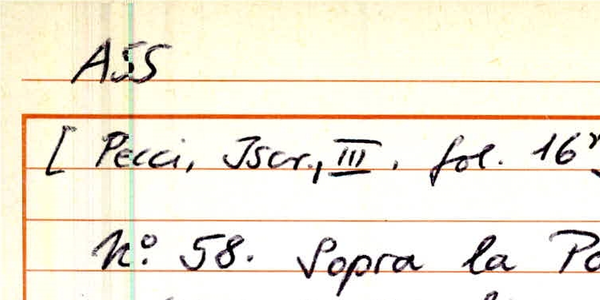 ASS
[ Pecci, Iscr., III, fol. 16
N.º 58. Sopra la